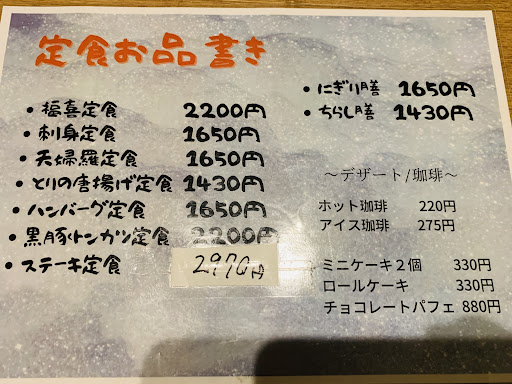 定食お品書き
• 福喜定食 2200円
• 刺身定食 1650円
• 天婦羅定食 1650円
• とりの唐揚げ定食 1430円
• ハンバーグ定食 1650円
• 黒豚トンカツ定食 2200円
• ステーキ定食 2970円
• にぎり膳 1650円
• ちらし膳 1430円
～デザート/珈琲～
ホット珈琲 220円
アイス珈琲 275円
ミニケーキ２個 330円
ロールケーキ 330円
チョコレートパフェ 880円